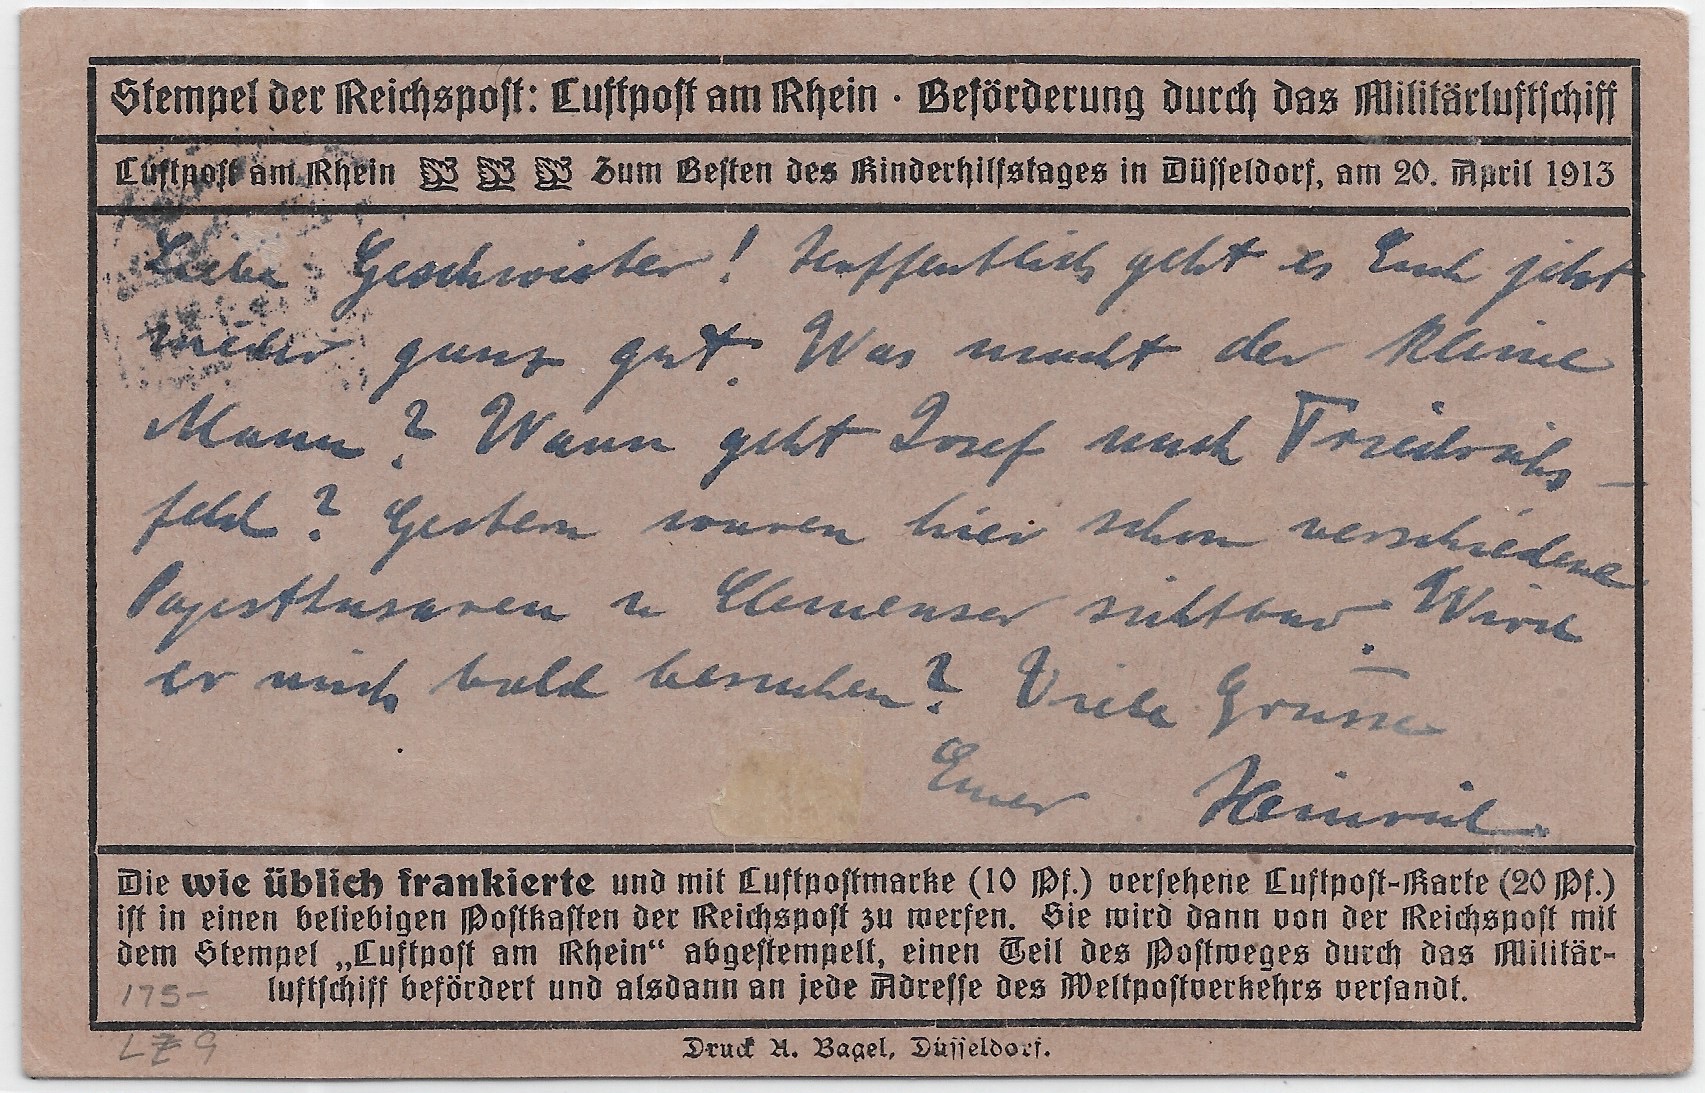 Stempel der Reichspost: Luftpost am Rhein · Beförderung durch das Militärluftschiff
Luftpost am Rhein Zum Besten des Kinderhilfstages in Düsseldorf, am 20. April 1913
Liebe Geschwister! Hoffentlich geht es Euch jetzt
wieder ganz gut. Was macht der kleine
Mann? Wann geht Josef nach Friedrichs-
feld? Gestern waren hier schon verschiedene
u Clemenser sichtbar. Wird
er mich bald besuchen? Viele Grüsse
Euer Heinrich.
Die wie üblich frankierte und mit Luftpostmarke (10 Pf.) versehene Luftpost-Karte (20 Pf.)
ist in einen beliebigen Postkasten der Reichspost zu werfen. Sie wird dann von der Reichspost mit
dem Stempel „Luftpost am Rhein“ abgestempelt, einen Teil des Postweges durch das Militär-
luftschiff befördert und alsdann an jede Adresse des Weltpostverkehrs versandt.
175-
LZ 9
Druck A. Bagel, Düsseldorf.